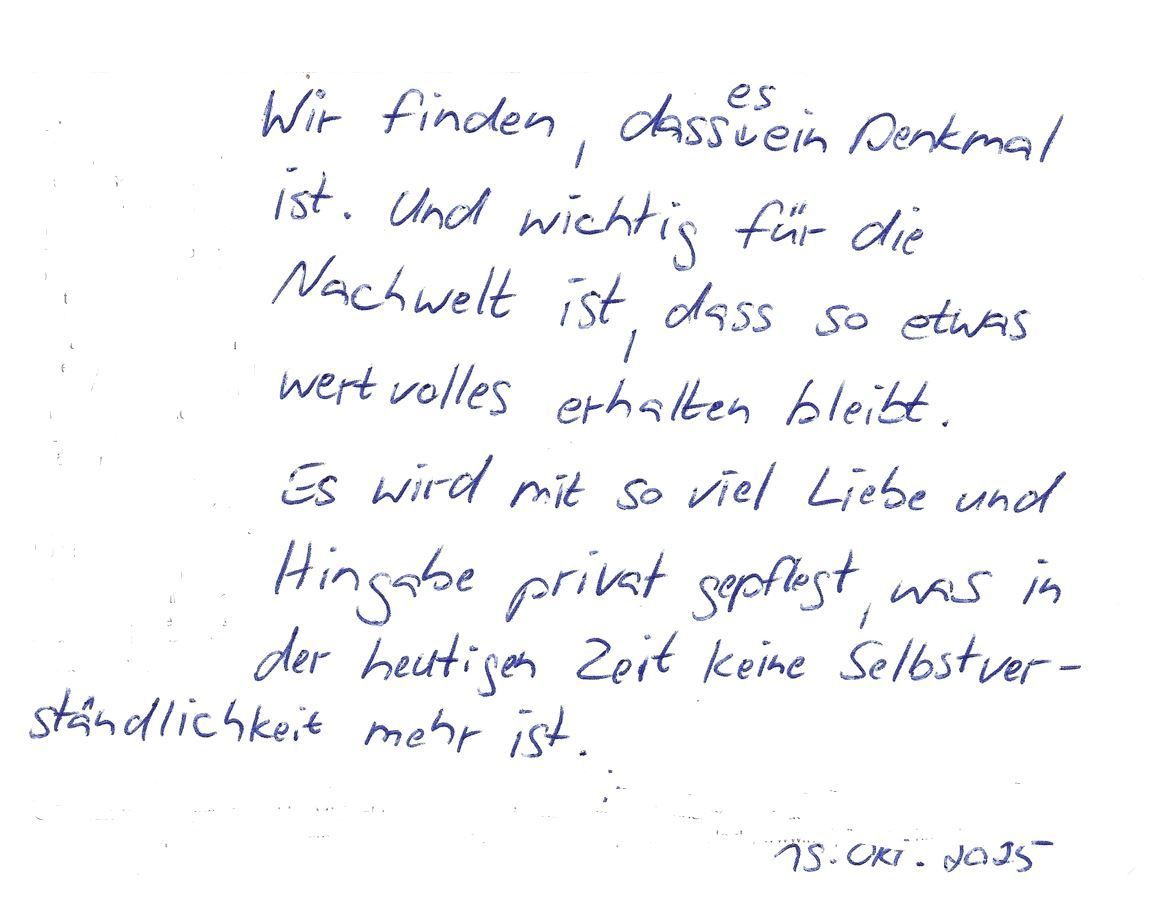 Wir finden, dass es ein Denkmal
ist. Und wichtig für die
Nachwelt ist, dass so etwas
wertvolles erhalten bleibt.
Es wird mit so viel Liebe und
Hingabe privat gepflegt, was in
der heutigen Zeit keine Selbstver-
ständlichkeit mehr ist.
15. Okt. 2025